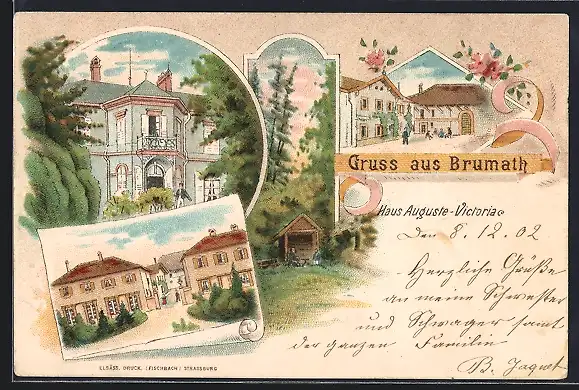 Gruss aus Brumath
Haus Auguste-Victoria
Den 8. 12. 02
Herzliche Grüße
an meine Schwester
und Schwager samt
der ganzen Familie
B. Jaquet
ELSÄSS. DRUCK. (FISCHBACH) STRASSBURG